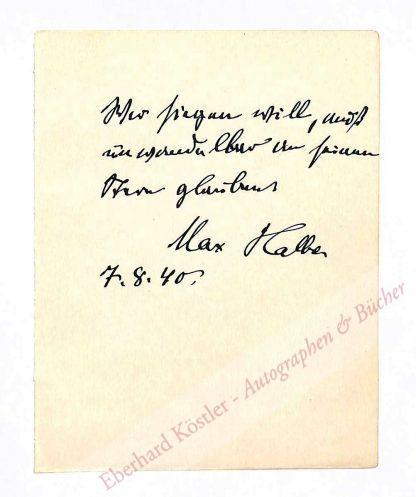 Wer siegen will, muß
unwandelbar an seinen
Stern glauben!
Max Halbe
7.8.40.
Eberhard Köstler - Autographen & Bücher